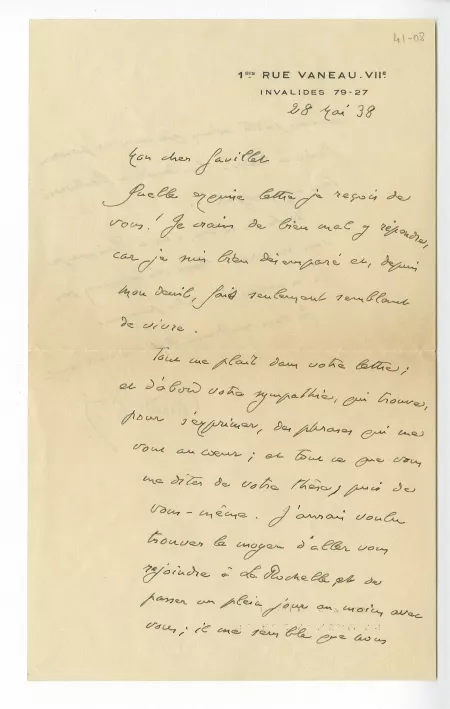 41-08
1bis RUE VANEAU. VIIe
INVALIDES 79-27
28 Mai 38
Mon cher Gavillet
Quelle exquise lettre je reçois de
vous! Je crains de bien mal y répondre,
car je suis bien désemparé et, depuis
mon deuil, fais seulement semblant
de vivre.
Tout me plaît dans votre lettre;
et d'abord votre sympathie, qui trouve,
pour s'exprimer, des phrases qui me
vont au cœur; et tout ce que vous
me dites de votre thèse, puis de
vous-même. J'aurais voulu
trouver le moyen d'aller vous
rejoindre à La Rochelle et de
passer un plein jour au moins avec
vous; il me semble que nous